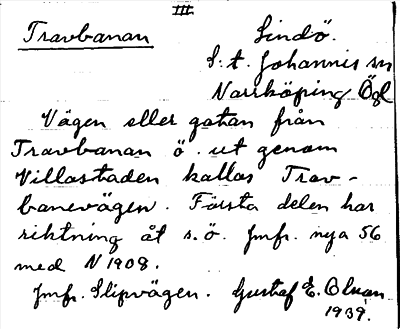 III
Travbanan Lindö.
S:t. Johannis sn
Norrköping Ögl
Vägen eller gatan från
Travbanan ö. ut genom
Villastaden kallas Trav-
banevägen. Första delen har
riktning åt s.ö. Jmfr. nya 56
med N 1908.
Jmfr. Slipvägen. Gustaf E. Olsson
1939.